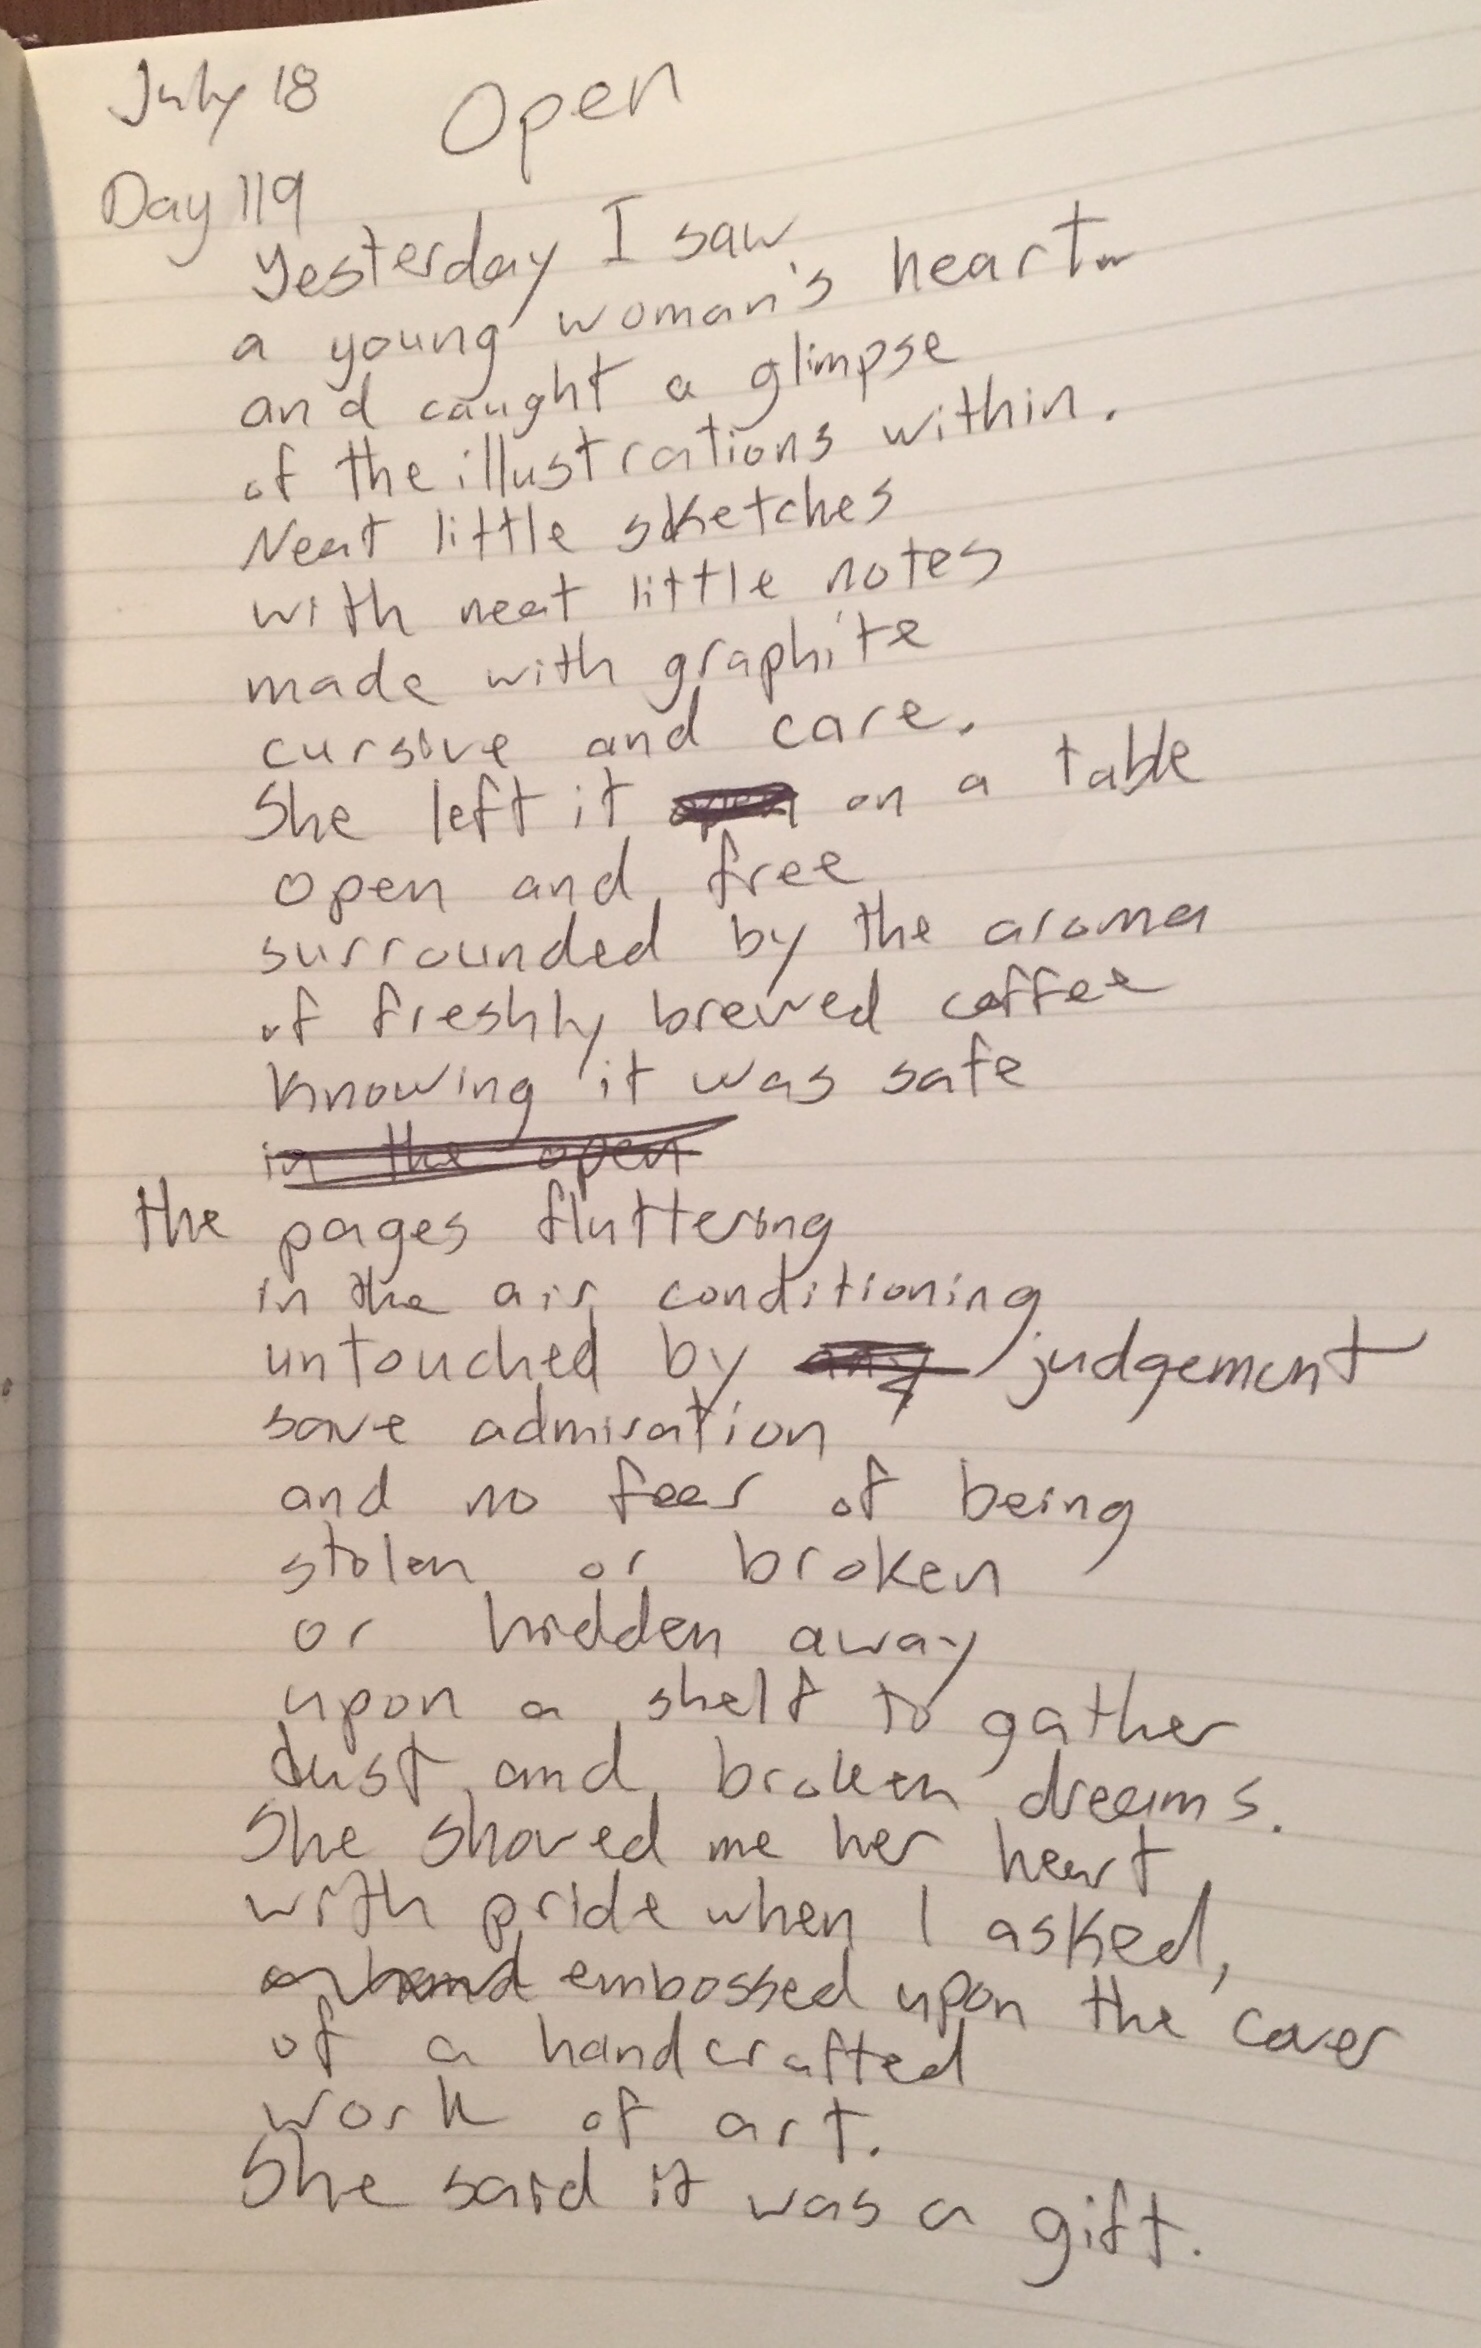 July 18 Open
Day 119
Yesterday I saw
a young woman's heart
and caught a glimpse
of the illustrations within.
Neat little sketches
with neat little notes
made with graphite
cursive and care.
She left it open on a table
open and free
surrounded by the aroma
of freshly brewed coffee
knowing it was safe
in the open
the pages fluttering
in the air conditioning
untouched by any judgement
save admiration
and no fear of being
stolen or broken
or hidden away
upon a shelf to gather
dust and broken dreams.
She showed me her heart
with pride when I asked,
embossed upon the cover
of a handcrafted
work of art.
She said it was a gift.